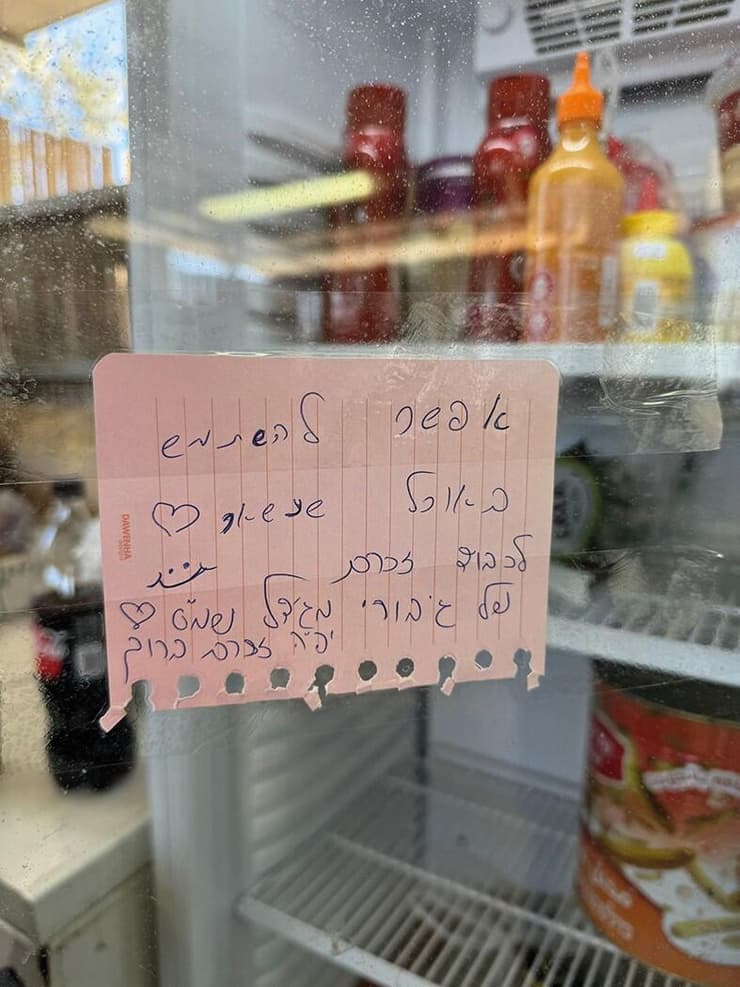 אפשר להשתמש
באוכל שנשאר ♡
לכבוד זכרם
של גיבורי מג'דל שמס ♡
יהיה זכרם ברוך
DAWENHA